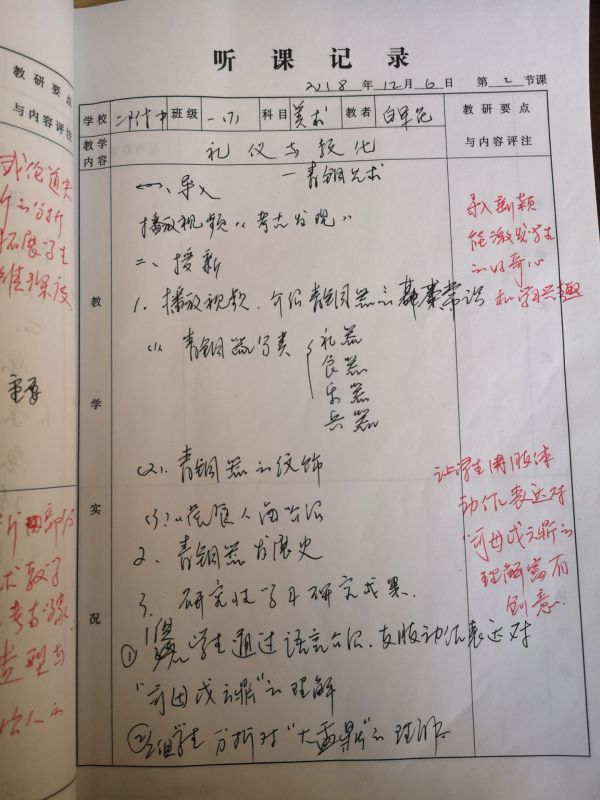 听课记录
2018年12月6日 第2节课
学校 二附中 班级 一(7) 科目 美术 教者
教研要点
与内容评注
教学内容 礼仪与教化
—青铜艺术
一、导入
播放视频“考古发现”
二、授新
1. 播放视频,介绍青铜器的基本常识
(1) 青铜器分类 礼器
食器
乐器
兵器
(2). 青铜器的纹饰
(3)
2. 青铜器发展史
3. 研究性学习研究成果.
① 学生通过语言介绍、肢体动作表达对
“司母戊方鼎”的理解
② 学生分析对“大盂鼎”的理解.
教学实况
导入新颖
能激发学生
的好奇心
和学习兴趣
让学生用肢体
动作表达对
“司母戊方鼎的
理解富有
创意.
教研要点
与内容评注
的分析
拓展学生
维深度